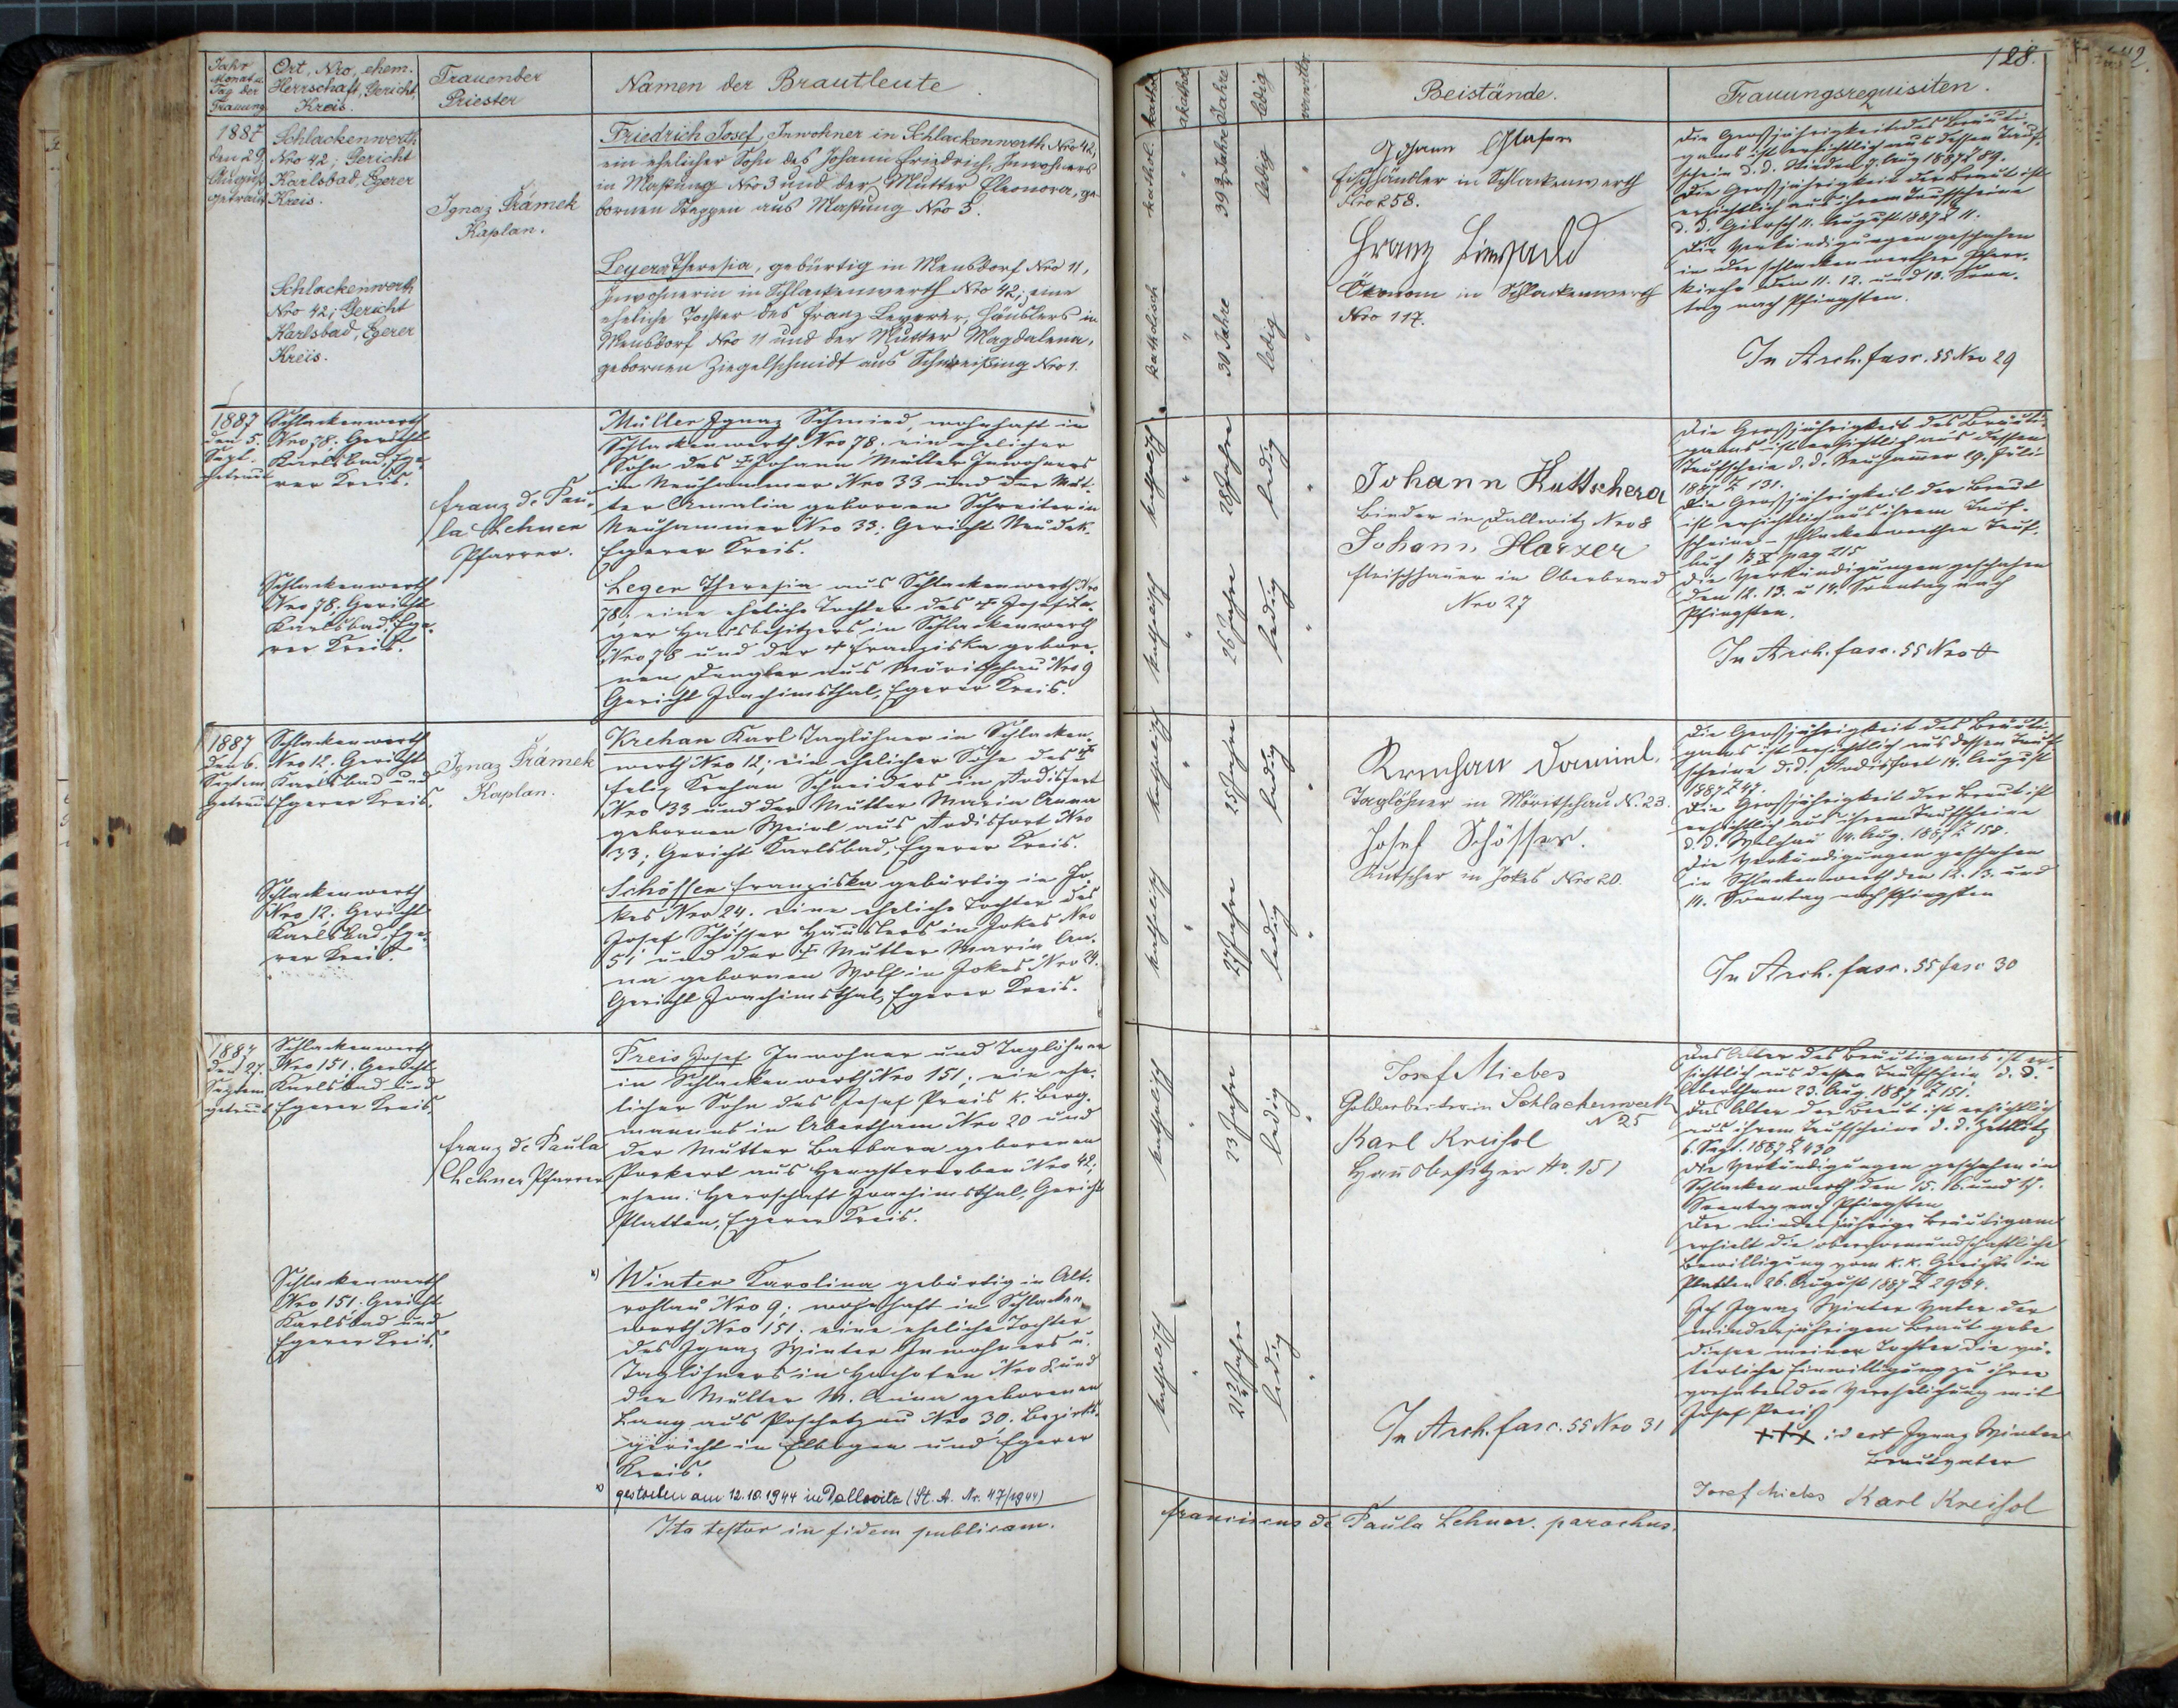 Jahr
Monat u.
Tag der
Trauung
Ort, Nro, ehem.
Herrschaft, Gericht,
Kreis.
Trauender
Priester
Namen der Brautleute
1887
den 29.
August
getraut
Schlackenwerth
Nro 42; Gericht
Karlsbad, Egerer
Kreis.
Ignaz Frámek
Kaplan.
Friedrich Josef, Inwohner in Schlackenwerth Nro 42,
ein ehelicher Sohn des Johann Friedrich, Inwohners
in Maßung Nro 3 und der Mutter Eleonora, ge-
bornen Steggen aus Maßung Nro 3.
Schlackenwerth
Nro 42; Gericht
Karlsbad, Egerer
Kreis.
Leyerer Theresia, gebürtig in Mensdorf Nro 11,
Inwohnerin in Schlackenwerth Nro 42; eine
eheliche Tochter des Franz Leyerer, Häuslers in
Mensdorf Nro 11 und der Mutter Magdalena,
gebornen Ziegelschmidt aus Schneißing Nro 1.
1887
den 5.
Sept.
getraut
Schlackenwerth
Nro 78; Gericht
Karlsbad, Ege-
rer Kreis.
Franz de Pau-
la Lehner
Pfarrer.
Müller Ignaz Schmied, wohnhaft in
Schlackenwerth Nro 78. ein ehelicher
Sohn des † Johann Müller Inwohners
in Neuhammer Nro 33 und der Mut-
ter Amalia gebornen Schreiter in
Neuhammer Nro 33; Gericht Neudek.
Egerer Kreis.
Schlackenwerth
Nro 78; Gericht
Karlsbad, Ege-
rer Kreis.
Leger Theresia aus Schlackenwerth Nro
78; eine eheliche Tochter des † Josef Le-
ger Hausbesitzers in Schlackenwerth
Nro 78 und der † Franziska gebor-
nen Dengler aus Möritschau Nro 9
Gericht Joachimsthal, Egerer Kreis.
1887
den 6.
Septem
getraut
Schlackenwerth
Nro 12. Gericht
Karlsbad und
Egerer Kreis.
Ignaz Frámek
Kaplan.
Krehan Karl Taglöhner in Schlacken-
werth Nro 12; ein ehelicher Sohn des †
Felix Krehan Schneiders in Rodisfort
Nro 133 und der Mutter Maria Anna
gebornen Weinl aus Rodisfort Nro
33; Gericht Karlsbad, Egerer Kreis.
Schlackenwerth
Nro 12. Gericht
Karlsbad, Ege-
rer Kreis.
Schösser Franziska gebürtig in Jo-
kes Nro 24. eine eheliche Tochter des
Josef Schösser Häuslers in Jokes Nro
51 und der † Mutter Maria An-
na gebornen Wolf in Jokes Nro 24.
Gericht Joachimsthal, Egerer Kreis.
1887
den 27.
Septem
getraut
Schlackenwerth
Nro 151; Gericht
Karlsbad und
Egerer Kreis.
Franz de Paula
Lehner Pfarrer
Preis Josef Inwohner und Taglöhner
in Schlackenwerth Nro 151; ein ehe-
licher Sohn des Josef Preis k. Berg-
manns in Abertham Nro 20 und
der Mutter Barbara gebornen
Porkert aus Hengstererben Nro 42;
ehem. Herrschaft Joachimsthal, Gericht
Platten, Egerer Kreis.
Schlackenwerth
Nro 151. Gericht
Karlsbad und
Egerer Kreis.
x) Winter Karolina gebürtig in Alt-
rohlau Nro 9; wohnhaft in Schlacken-
werth Nro 151. eine eheliche Tochter
des Ignaz Winter Inwohners u.
Taglöhners in Hochofen Nro 8 und
der Mutter M. Anna gebornen
Lang aus Poschetzau Nro 30. Bezirks-
gericht in Elbogen und Egerer
Kreis.
x) gestorben am 12.10.1944 in Dallwitz (St. A. Nr. 47/1944)
Ita testor in fidem publicam.
128.
kathol.
akathol.
Jahre
ledig
verwittw.
Beistände.
Trauungsrequisiten.
kathol. " 39 Jahre ledig "
Johann Glaser
Fischhändler in Schlackenwerth
Nro 258.
Franz Liewald
Ökonom in Schlackenwerth
Nro 117.
katholisch " 30 Jahre ledig "
Die Großjährigkeit des Bräuti-
gams ist ersichtlich aus dessen Tauf-
schein d. d. 7. Aug 1887 Z 89.
Die Großjährigkeit der Braut ist
ersichtlich aus ihrem Taufscheine
d. d. Giersch 11. August 1887 Z 11.
Die Verkündigungen geschahen
in der schlackenwerther Pfarr-
kirche den 11. 12. und 13. Sonn-
tag nach Pfingsten.
In Arch. fasc. 55 Nro 29
katholisch " 28 Jahre ledig "
Johann Kuttschera
Binder in Dallwitz Nro 8
Johann Harzer
Fleischhauer in Oberbrand
Nro 27
katholisch " 26 Jahre ledig "
Die Großjährigkeit des Bräuti-
gams ist ersichtlich aus dessen
Taufschein d. d. Neuhamer 19. Juli
1887 Z 131.
Die Großjährigkeit der Braut
ist ersichtlich aus ihrem Tauf-
scheine - schlackenwerther Tauf-
buch pag 215
Die Verkündigungen geschahen
den 12. 13. u 14. Sonntag nach
Pfingsten.
In Arch. fasc. 55 Nro
katholisch " 25 Jahre ledig "
Krechan Daniel,
Taglöhner in Möritschau N. 23.
Josef Schösser.
Kutscher in Jokes Nro 20.
katholisch " 27 Jahre ledig "
Die Großjährigkeit des Bräuti-
gams ist ersichtlich aus dessen Tauf-
scheine d. d. Rodisfort 14. August
1887 Z 47.
Die Großjährigkeit der Braut ist
ersichtlich aus ihrem Taufscheine
d. d. Welchau 14. Aug. 1887 Z 158.
Die Verkündigungen geschahen
in Schlackenwerth den 12. 13. und
14. Sonntag nach Pfingsten
In Arch. fasc. 55 fasc 30
katholisch " 23 Jahre ledig "
Josef Miebes
Goldarbeiter in Schlackenwerth
N 25
Karl Kreissl
Hausbesitzer No. 151
katholisch " 21 Jahre ledig "
In Arch. fasc. 55 Nro 31
Das Alter des Bräutigams ist er-
sichtlich aus dessen Taufschein d. d.
Abertham 23. Aug. 1887 Z 151.
Das Alter der Braut ist ersichtlich
aus ihrem Taufscheine d. d. Zettlitz
6. Sept. 1887 Z 430
Die Verkündigungen geschahen in
Schlackenwerth den 15. 16. und 17.
Sonntag nach Pfingsten
Der minderjährige Bräutigam
erhielt die obervormundschaftliche
Bewilligung vom k. k. Gerichte in
Platten 26. August 1887 Z 2954.
Ich Ignaz Winter Vater der
minderjährigen Braut gebe
dieser meiner Tochter die vä-
terliche Einwilligung zu ihrer
vorhabenden Verehelichung mit
Josef Preis
+++ id est Ignaz Winter
Brautvater
Josef Miebes Karl Kreissl
Franciscus de Paula Lehner. parochus.